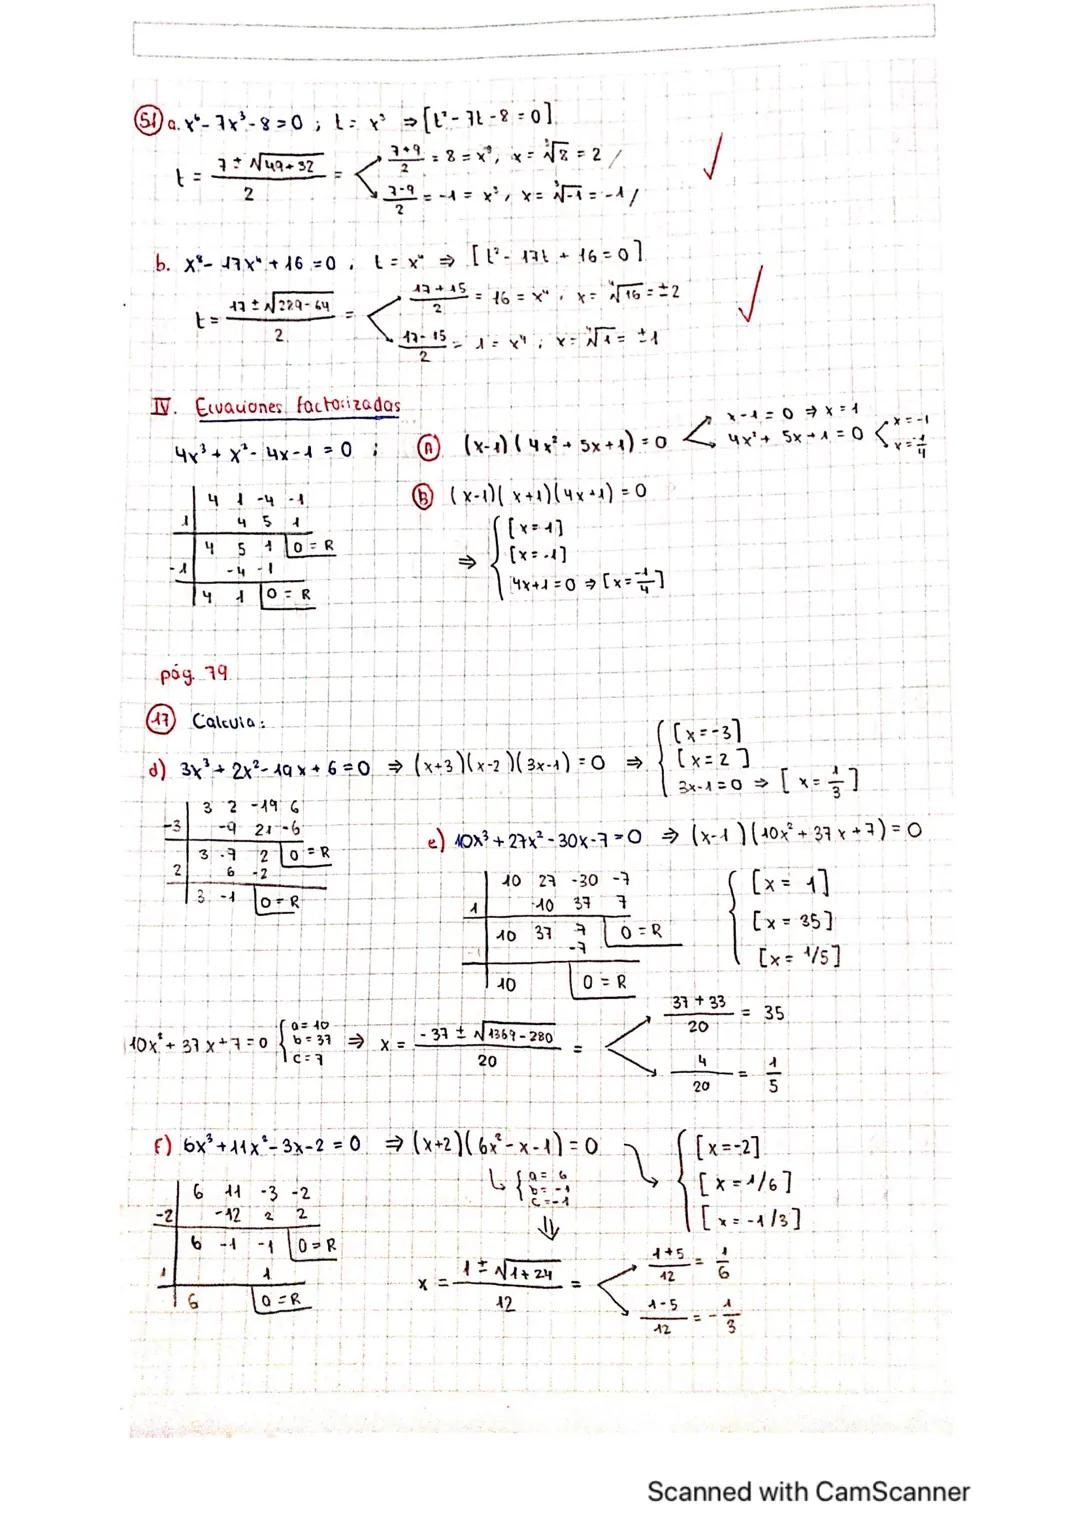 51 a. x⁶ - 7x³ - 8 = 0 ; t = x³ ⇒ [t² - 7t - 8 = 0]
t = (7 ± √49+32)/2 =
(7+9)/2 = 8 = x³, x = ³√8 = 2 /
(7-9)/2 = -1 = x³, x = ³√-1 = -1 /
b. x⁸ - 17x⁴ + 16 = 0 ; t = x⁴ ⇒ [t² - 17t + 16 = 0]
t = (17 ± √289-64)/2 =
(17+15)/2 = 16 = x⁴ , x = ⁴√16 = ±2
(17-15)/2 = 1 = x⁴ ; x = ⁴√1 = ±1
IV. Ecuaciones factorizadas
4x³ + x² - 4x - 1 = 0 ;
A (x-1)(4x² + 5x + 1) = 0
x-1 = 0 ⇒ x = 1
4x² + 5x + 1 = 0
x = -1
x = -1/4
4 1 -4 -1
1 4 5 1
4 5 1 0 = R
-1 -4 -1
4 1 0 = R
B (x-1)(x+1)(4x+1) = 0
⇒
[x = 1]
[x = -1]
4x+1 = 0 ⇒ [x = -1/4]
pág. 79
17 Calcula:
d) 3x³ + 2x² - 19x + 6 = 0 ⇒ (x+3)(x-2)(3x-1) = 0 ⇒
[x = -3]
[x = 2]
3x-1 = 0 ⇒ [x = 1/3]
3 2 -19 6
-3 -9 21 -6
3 -7 2 0 = R
2 6 -2
3 -1 0 = R
e) 10x³ + 27x² - 30x - 7 = 0 ⇒ (x-1)(10x² + 37x + 7) = 0
10 27 -30 -7
1 10 37 7
10 37 7 0 = R
-7
10 0 = R
[x = 1]
[x = 35]
[x = 1/5]
10x² + 37x + 7 = 0
a = 10
b = 37
c = 7
⇒ x = (-37 ± √1369-280)/20 =
(37+33)/20 = 35
4/20 = 1/5
f) 6x³ + 11x² - 3x - 2 = 0 ⇒ (x+2)(6x² - x - 1) = 0
[x = -2]
[x = 1/6]
[x = -1/3]
a = 6
b = -1
c = -1
6 11 -3 -2
-2 -12 2 2
6 -1 -1 0 = R
1 1
6 0 = R
x = (1 ± √1+24)/12 =
(1+5)/12 = 1/6
(1-5)/12 = -1/3
Scanned with CamScanner